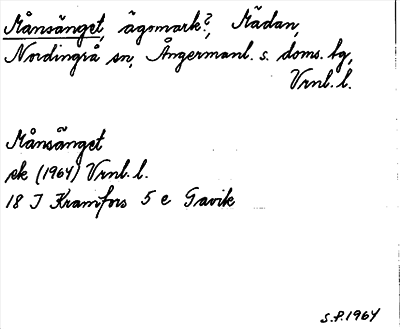 Månsänget, ägomark?, Mädan,
Nordingrå sn, Ångermanl. s. doms. tg,
Vrnl. l.
Månsänget
ek (1964) Vrnl. l.
18 I Kramfors 5 e Gavik
S.P. 1964